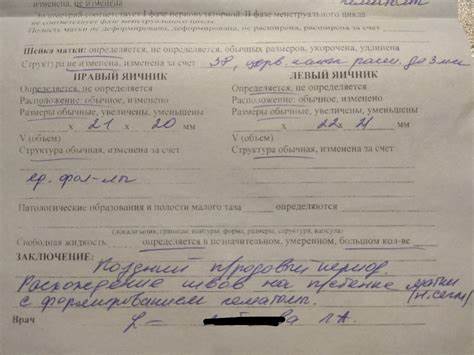 Эндометрий соответствует I фазе
Полость матки не деформирована, деформирована, не расширена, расширена за счет
Шейка матки: определяется, не определяется, обычных размеров, укорочена, удлинена
Структура не изменена, изменена за счет ЭР, церв. канал расш. до 3 мм
ПРАВЫЙ ЯИЧНИК ЛЕВЫЙ ЯИЧНИК
Определяется, не определяется Определяется, не определяется
Расположение: обычное, изменено Расположение: обычное, изменено
Размеры обычные, увеличены, уменьшены Размеры обычные, увеличены, уменьшены
х 21 х 20 мм 22 х 21 мм
V (объем) V (объем)
Структура обычная, изменена за счет Структура обычная, изменена за счет
ед. фол-лы
Патологические образования в полости малого таза определяются
(локализация, границы, контуры, форма, размеры, структура, капсула)
Свободная жидкость определяется в незначительном, умеренном, большом кол-ве
ЗАКЛЮЧЕНИЕ:
Поздний п/родовый период.
Расхождение швов на п/стенке матки
с формированием гематомы. (н.сегм)
Врач